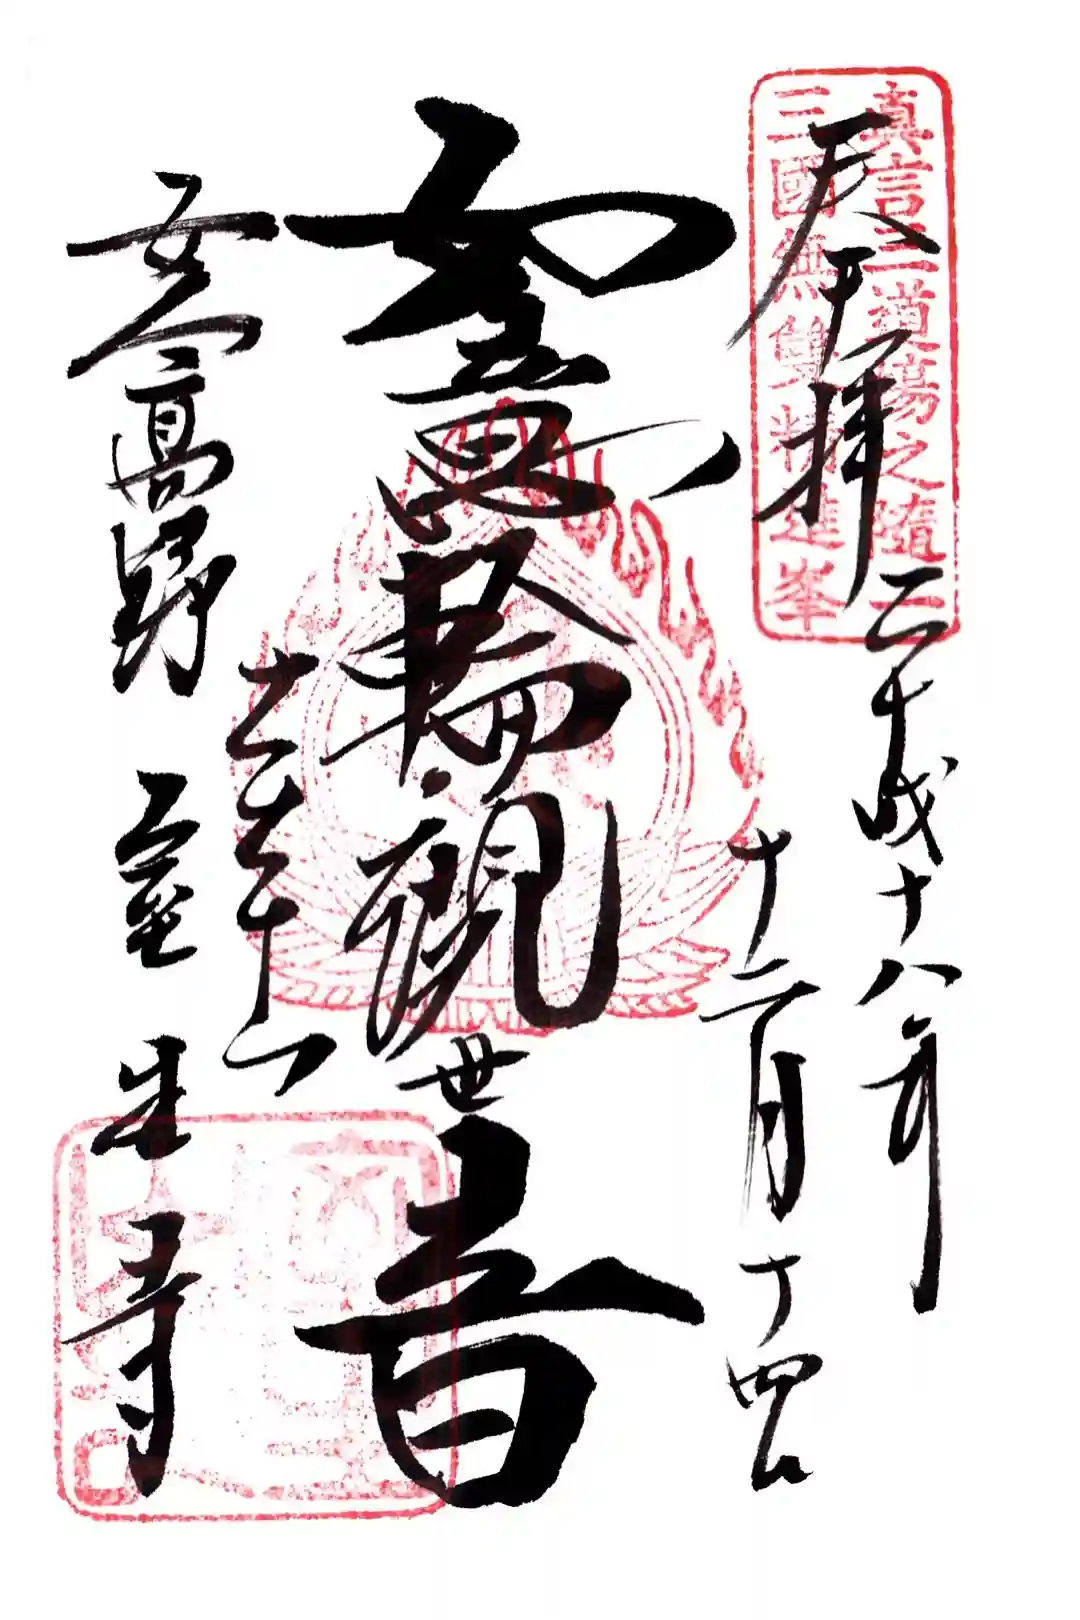 眞言三道場之隨一
三國無雙精進峯
奉拝
平成十八年
十二月十四日
如意輪觀世音
女人高野 室生寺